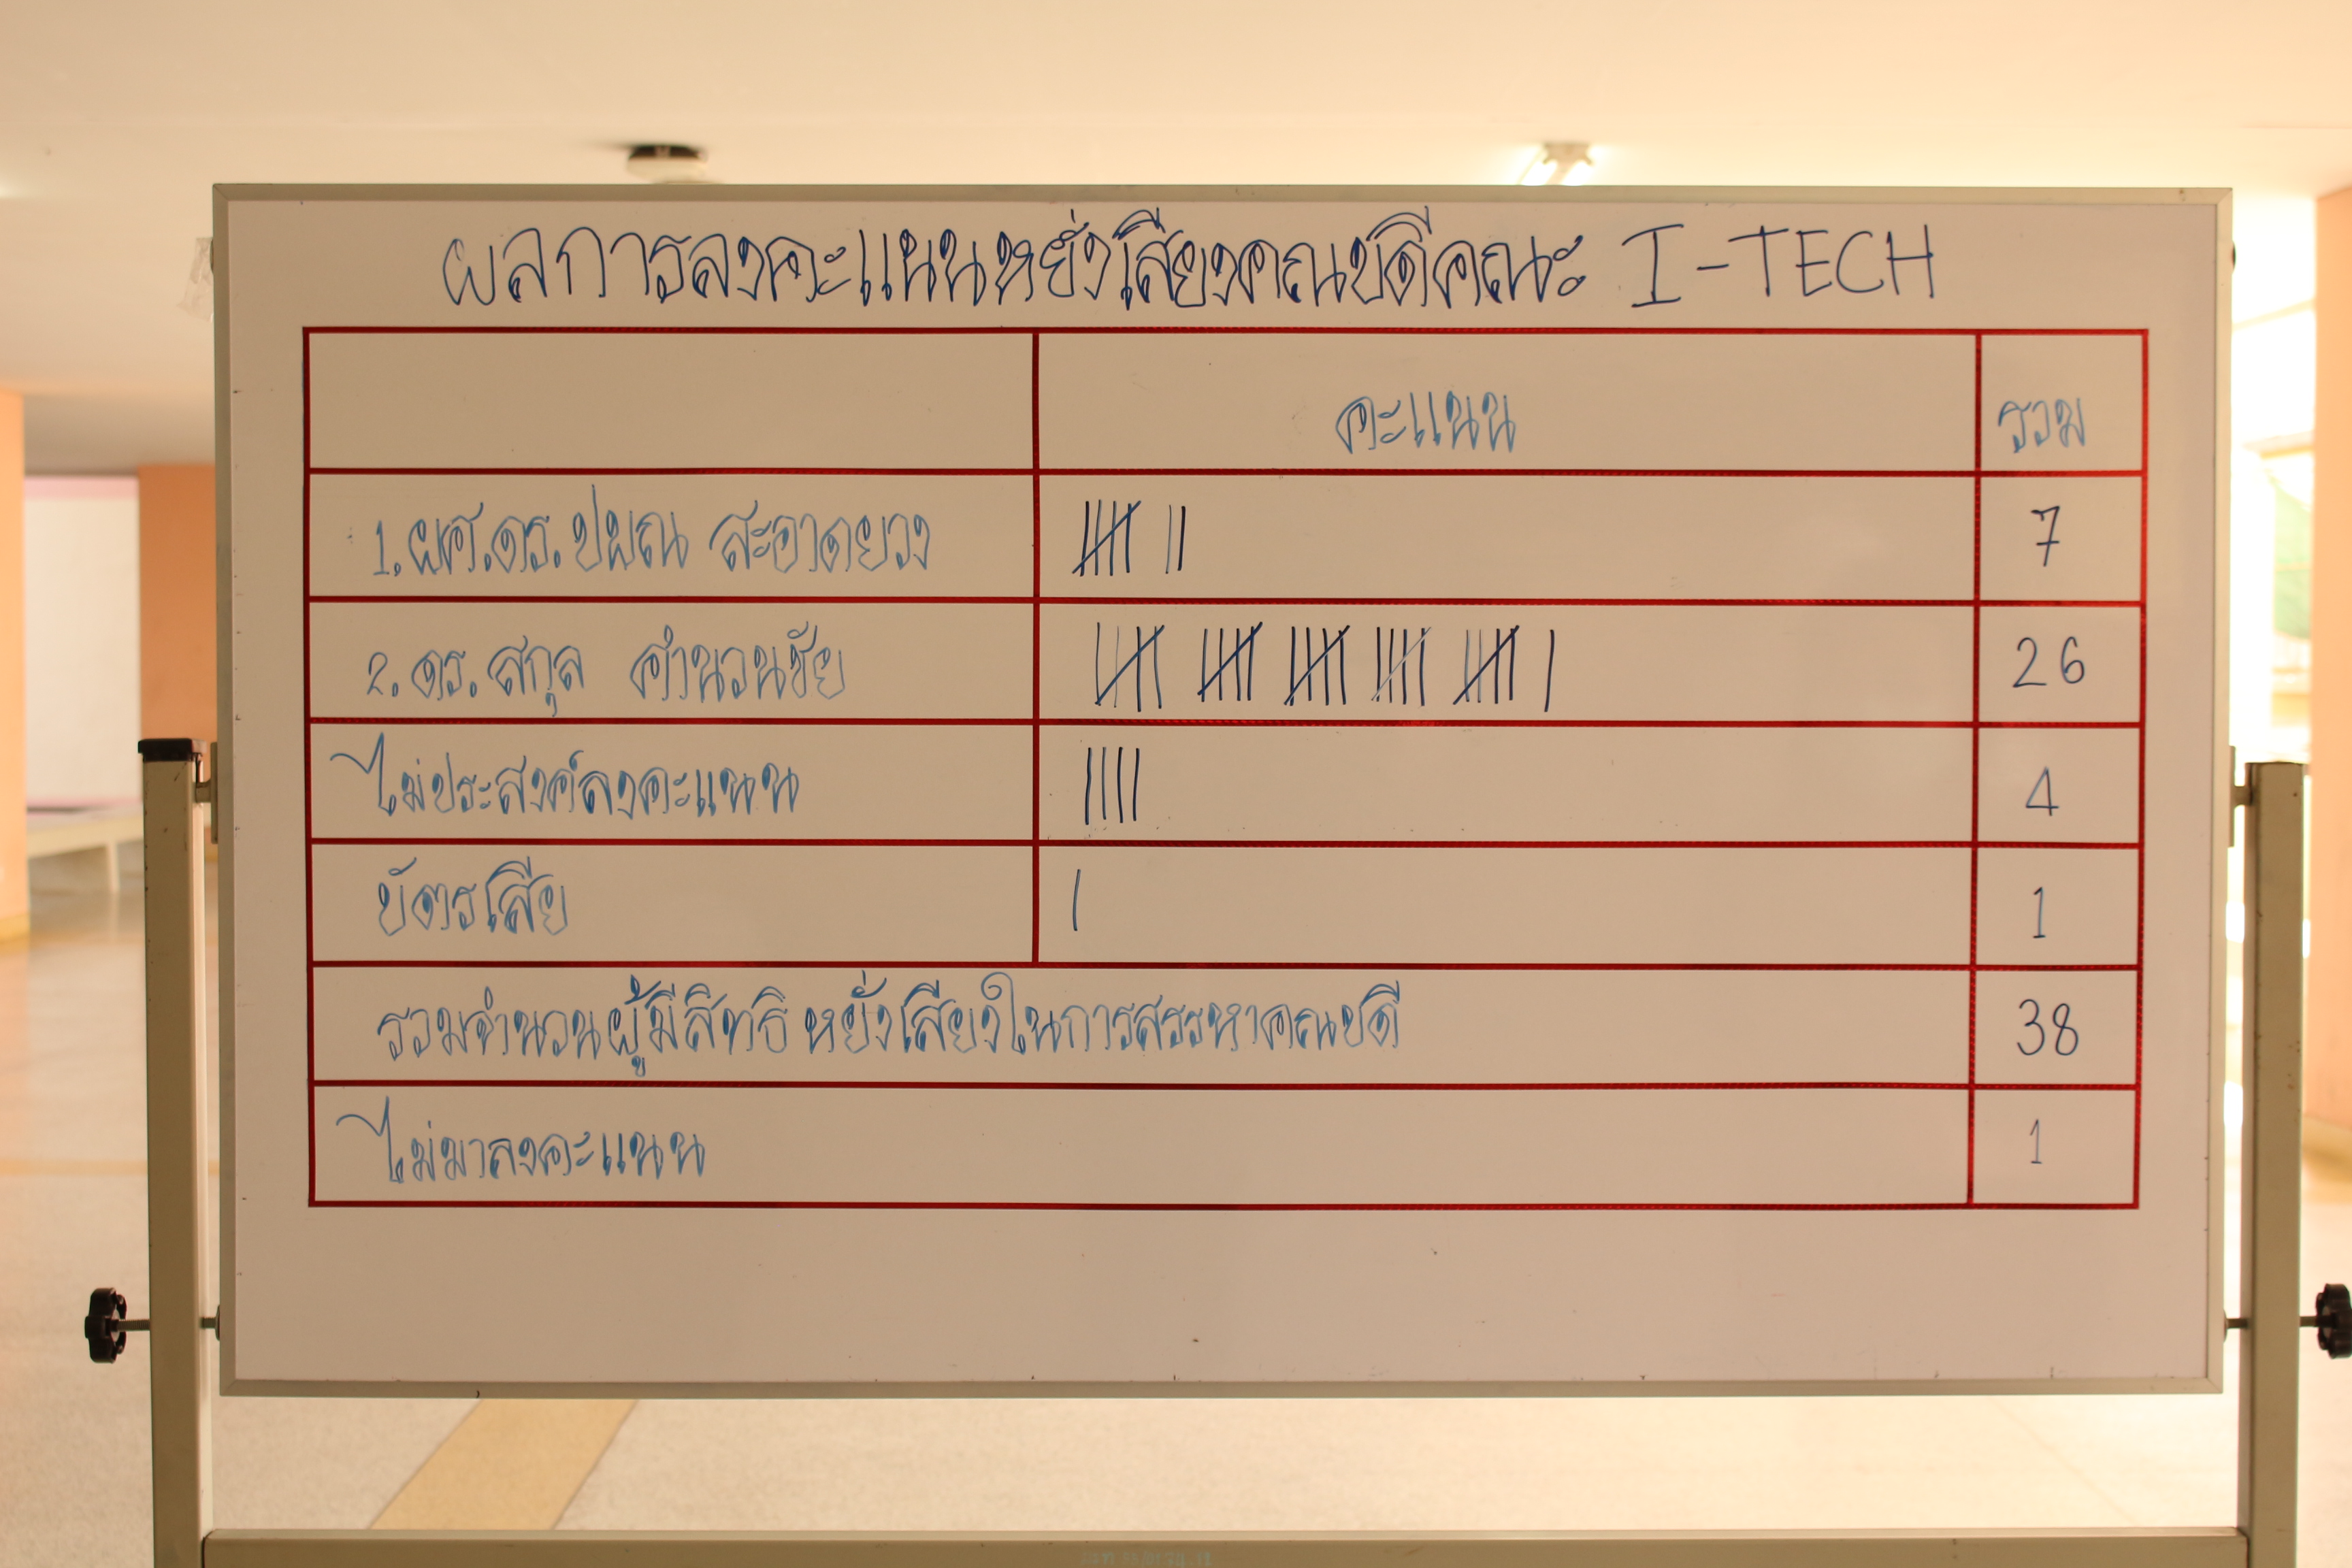 ผลการลงคะแนนหยั่งเสียงคณบดีคณะ I-TECH
คะแนน รวม
1. ผศ.ดร. ปผณ สะอาดยวง 7
2. ดร. สกุล คำนวนชัย 26
ไม่ประสงค์ลงคะแนน 4
บัตรเสีย 1
รวมจำนวนผู้มีสิทธิหยั่งเสียงในการสรรหาคณบดี 38
ไม่มาลงคะแนน 1